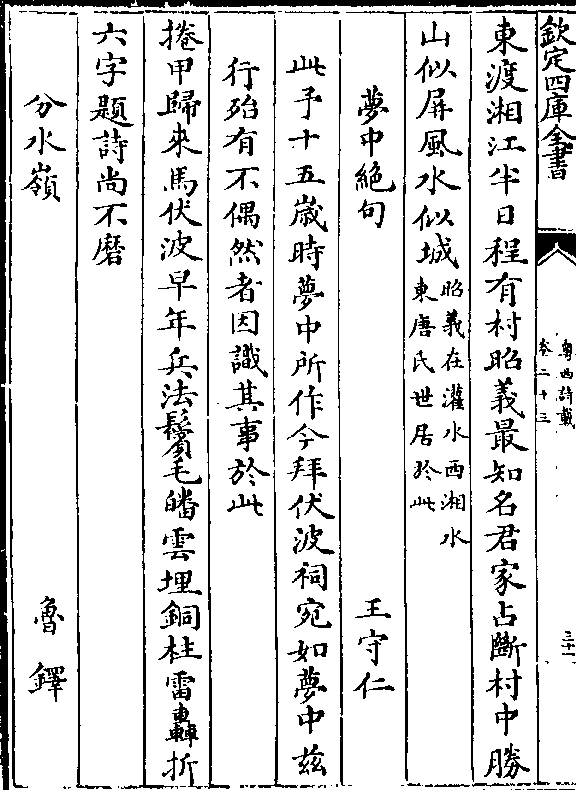 欽定四庫全書
粤西詩載
卷二十三
三十一
東渡湘江半日程有村昭義最知名君家占斷村中勝
山似屏風水似城昭義在灌水西湘水
東唐氏世居於此
夢中絶句 王守仁
此予十五歳時夢中所作今拜伏波祠宛如夢中兹
行殆有不偶然者因識其事於此
捲甲歸來馬伏波早年兵法鬢毛皤雲埋銅柱雷轟折
六字題詩尚不磨
分水嶺 魯鐸